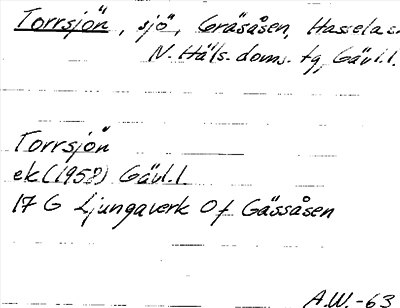 Torrsjön, sjö, Gräsåsen, Hassela s
N. Häls. doms. tg, Gävl. l.
Torrsjön
ek (1958) Gävl. l.
17 G Ljungaverk 0 f Gässåsen
A.W.-63